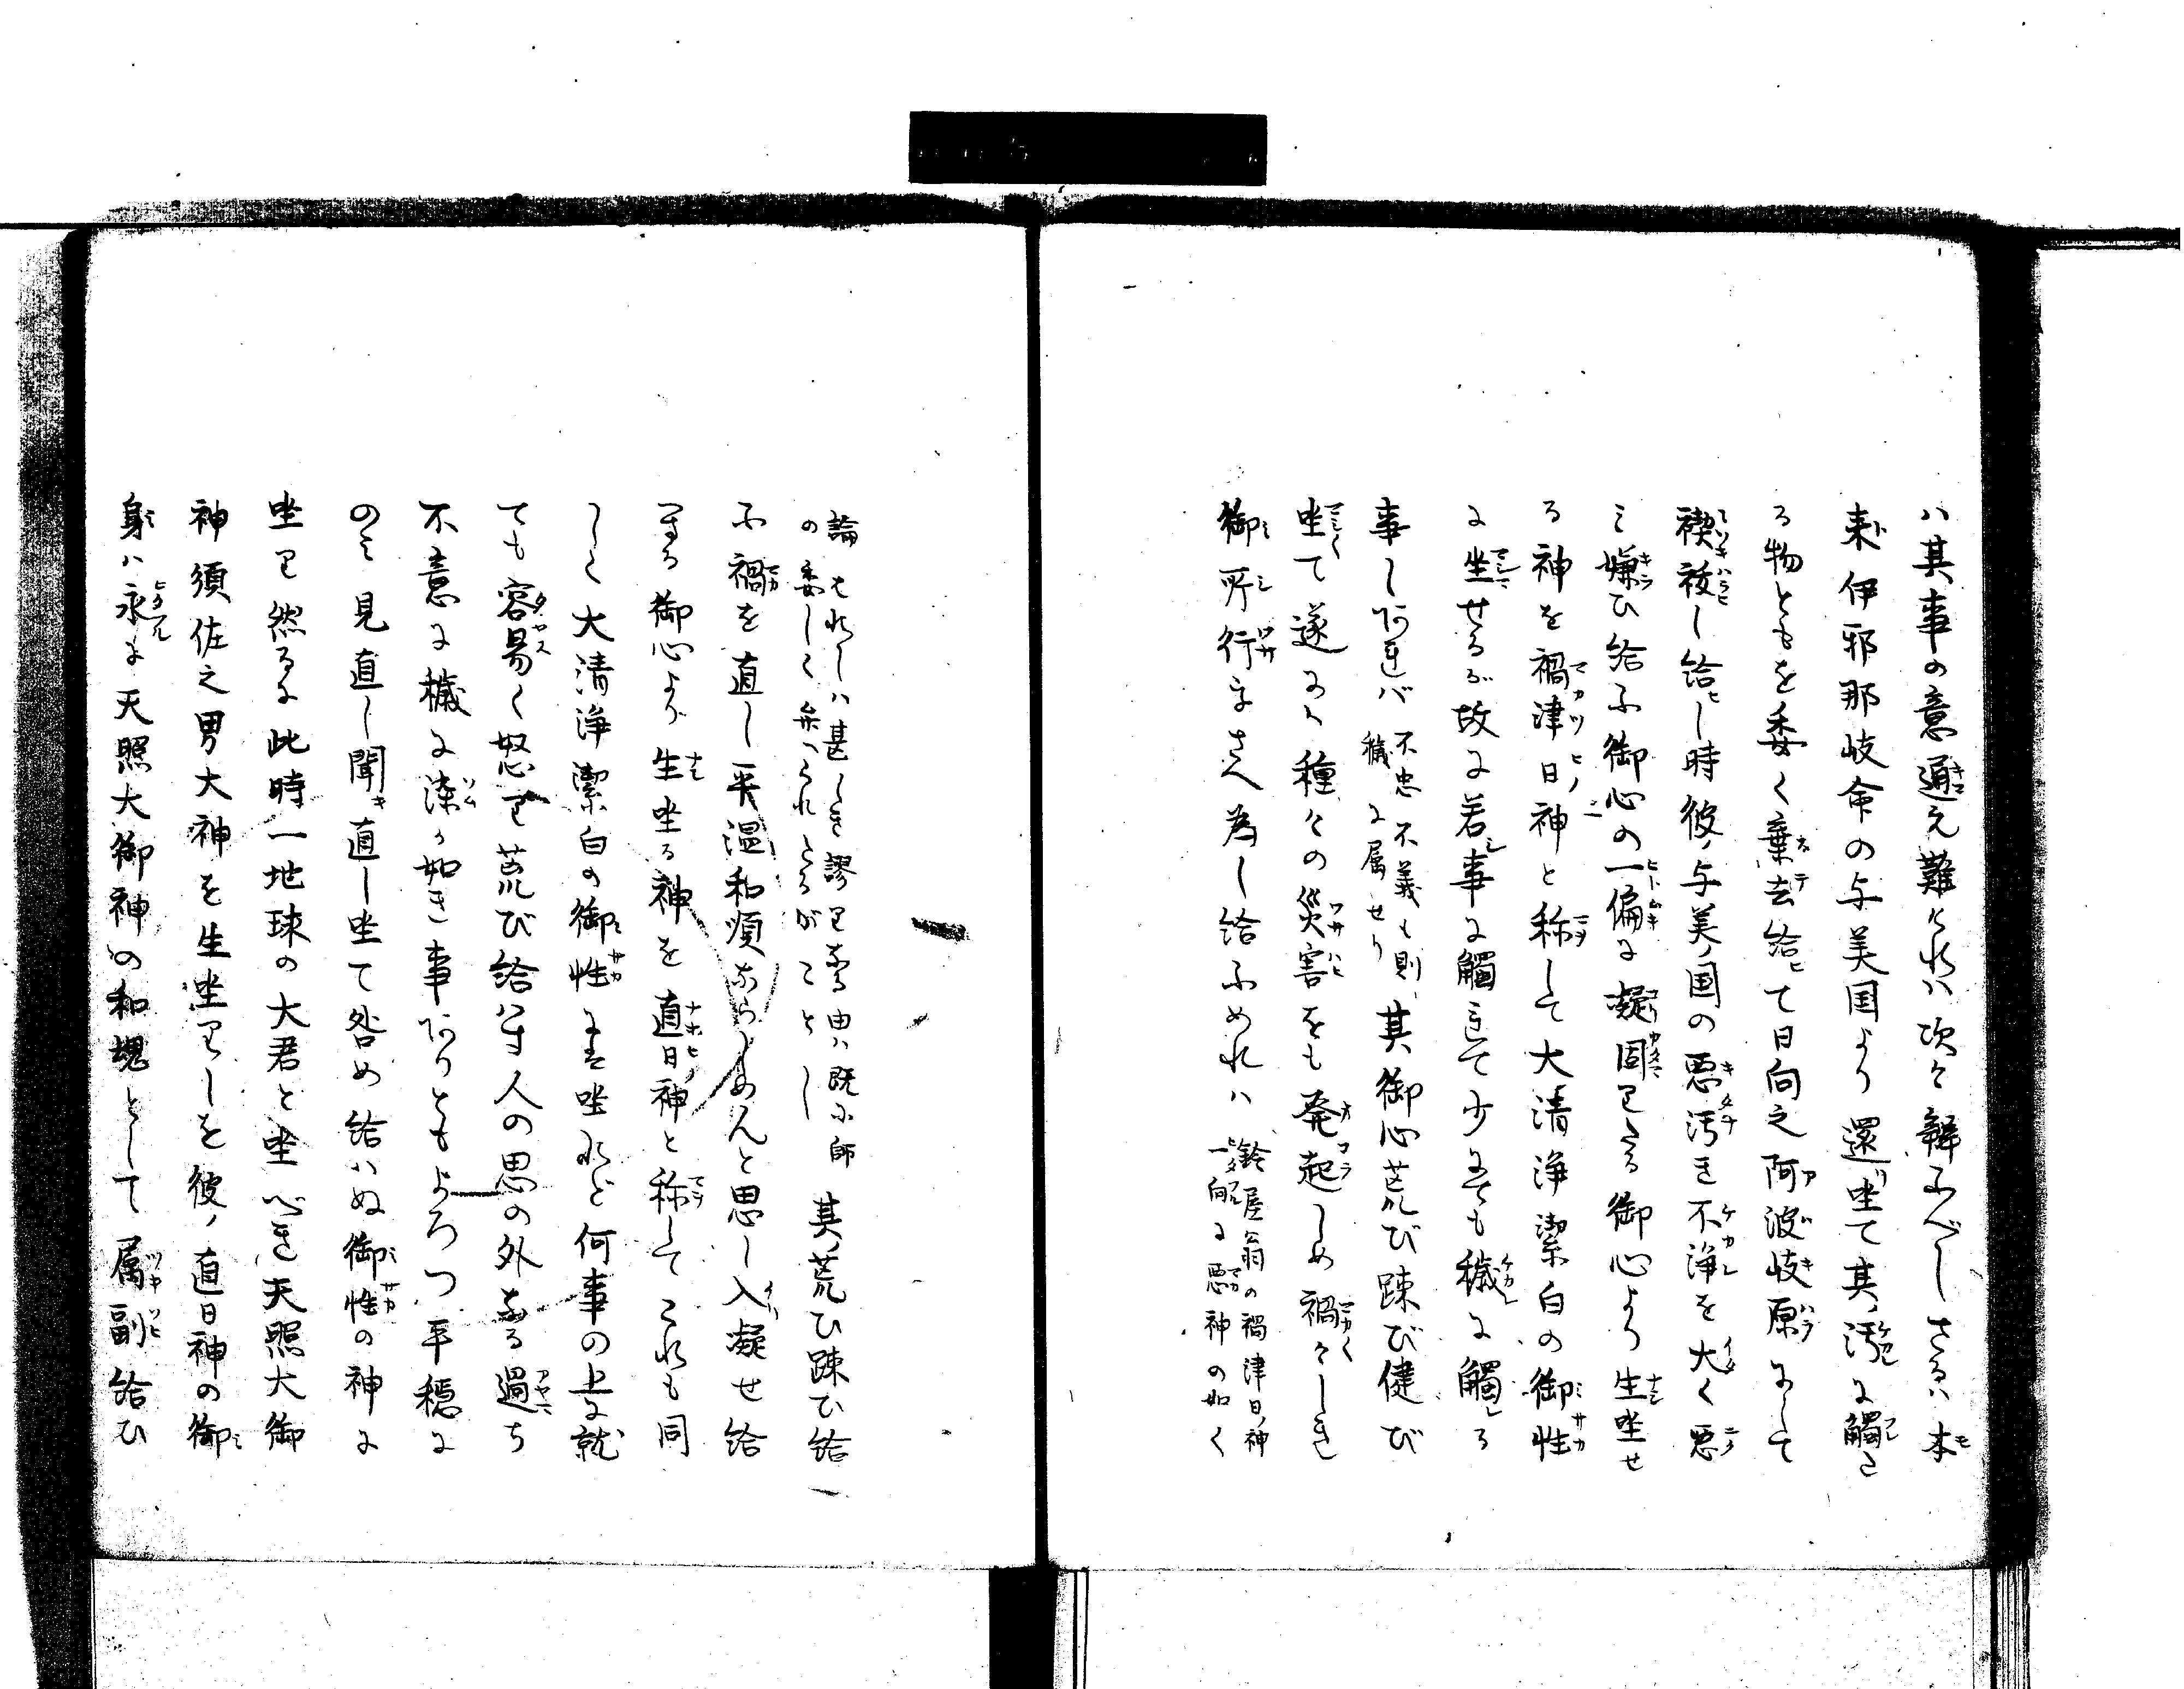 ハ其事の意通え難けれハ次々辨ふべしさるハ本
来伊邪那岐命の与美国より還坐て其汚に觸る
る物ともを委く棄去給ひて日向之阿波岐原にして
禊祓し給ひし時彼ノ与美ノ国の悪汚き不浄を大く悪
み嫌ひ給ふ御心の一偏に凝固りたる御心より生坐せ
る神を禍津日ノ神と称して大清浄潔白の御性
に坐せるが故に若シ事に觸れて少にても穢に觸るゝ
事しあれバ不忠不義も則
穢に属せり其御心荒び疎び健び
坐て遂には種々の災害をも発起しめ禍々しき
御所行をさへ為し給ふめれハ鈴屋翁の禍津日ノ神
を一向に悪神の如く
論はれしハ甚しき謬りなる由ハ既に師
の委しく弁へられたるがことし其ノ荒ひ疎ひ給
ふ禍を直し平温和順ならしめんと思し入凝せ給
へる御心より生坐る神を直日ノ神と称してこれも同
しく大清浄潔白の御性にハ坐れど何事の上に就
ても容易く怒り荒び給はず人の思の外なる過ち
不意に穢に染か如き事ありともよろつ平穏に
のミ見直し聞直し坐て咎め給ハぬ御性の神に
坐り然るに此時一地球の大君と坐へき天照大御
神須佐之男大神を生坐りしを彼ノ直日神の御
身ハ永に天照大御神の和魂として属副給ひ